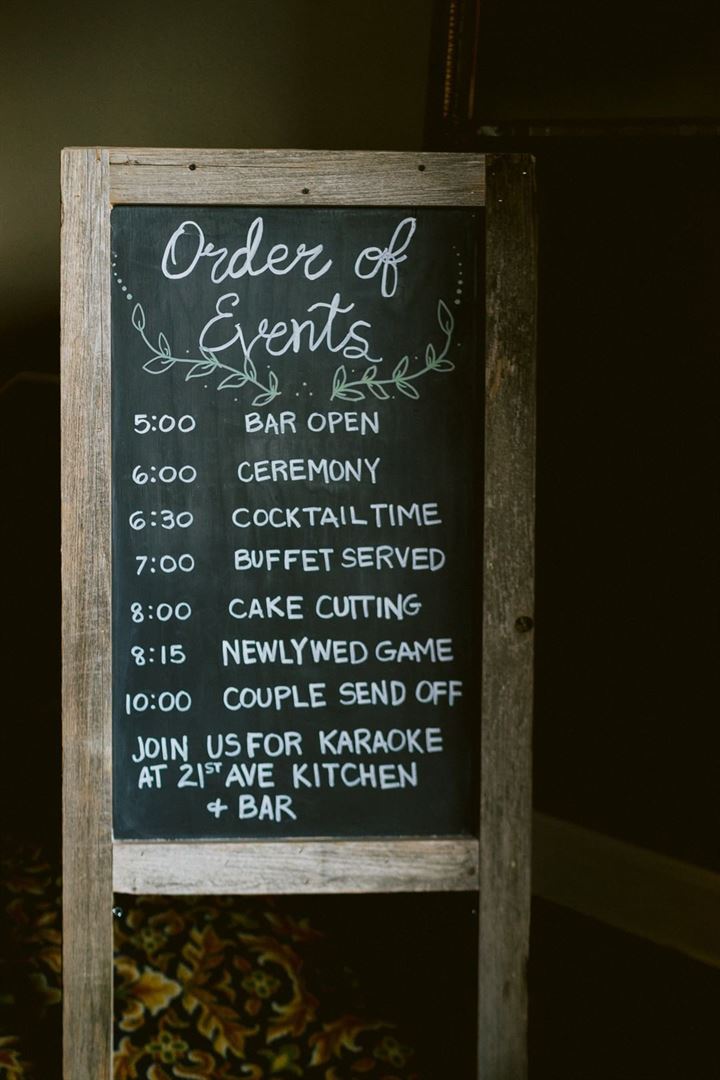 Order of
Events
5:00 BAR OPEN
6:00 CEREMONY
6:30 COCKTAIL TIME
7:00 BUFFET SERVED
8:00 CAKE CUTTING
8:15 NEWLYWED GAME
10:00 COUPLE SEND OFF
JOIN US FOR KARAOKE
AT 21ST AVE KITCHEN
& BAR